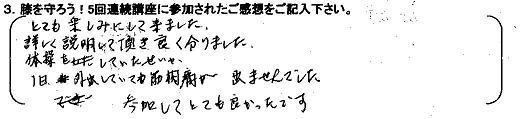 3. 膝を守ろう!5回連続講座に参加されたご感想をご記入下さい。
とても楽しみにして来ました。
詳しく説明して頂き良く分りました。
体操をしていたせいか
1日外出していても筋肉痛が出ませんでした
参加してとても良かったです